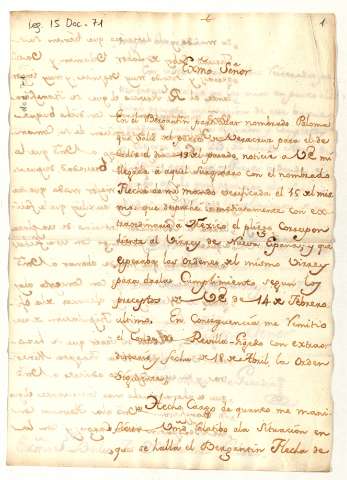 Leg. 15 Doc. 71
1
Exmo. Señor
En el Bergantin particular nombrado Paloma
que salió del puerto de Veracruz para el de
el dia 19 del pasado, noticié a VE mi
llegada a aquel fondeadero con el nombrado
Flecha de mi mando verificada el 15 del mis
mo: que despaché inmediatamente con ex-
traordinario a Mexico el pliego correspon
diente al Virrey de Nueva España; y que
esperaba las ordenes del mismo Virrey
para darlas cumplimiento, segun los
preceptos de VE de 14 de Febrero
ultimo. En consequencia me remitió
el Conde de Revilla-Gigedo con extraor
dinario, y fecha de 18 de Abril, la orden
siguiente.
Hecho cargo de quanto me mani-
fiesta Vmd. relatibo a la situación en
que se halla el Bergantin Flecha de